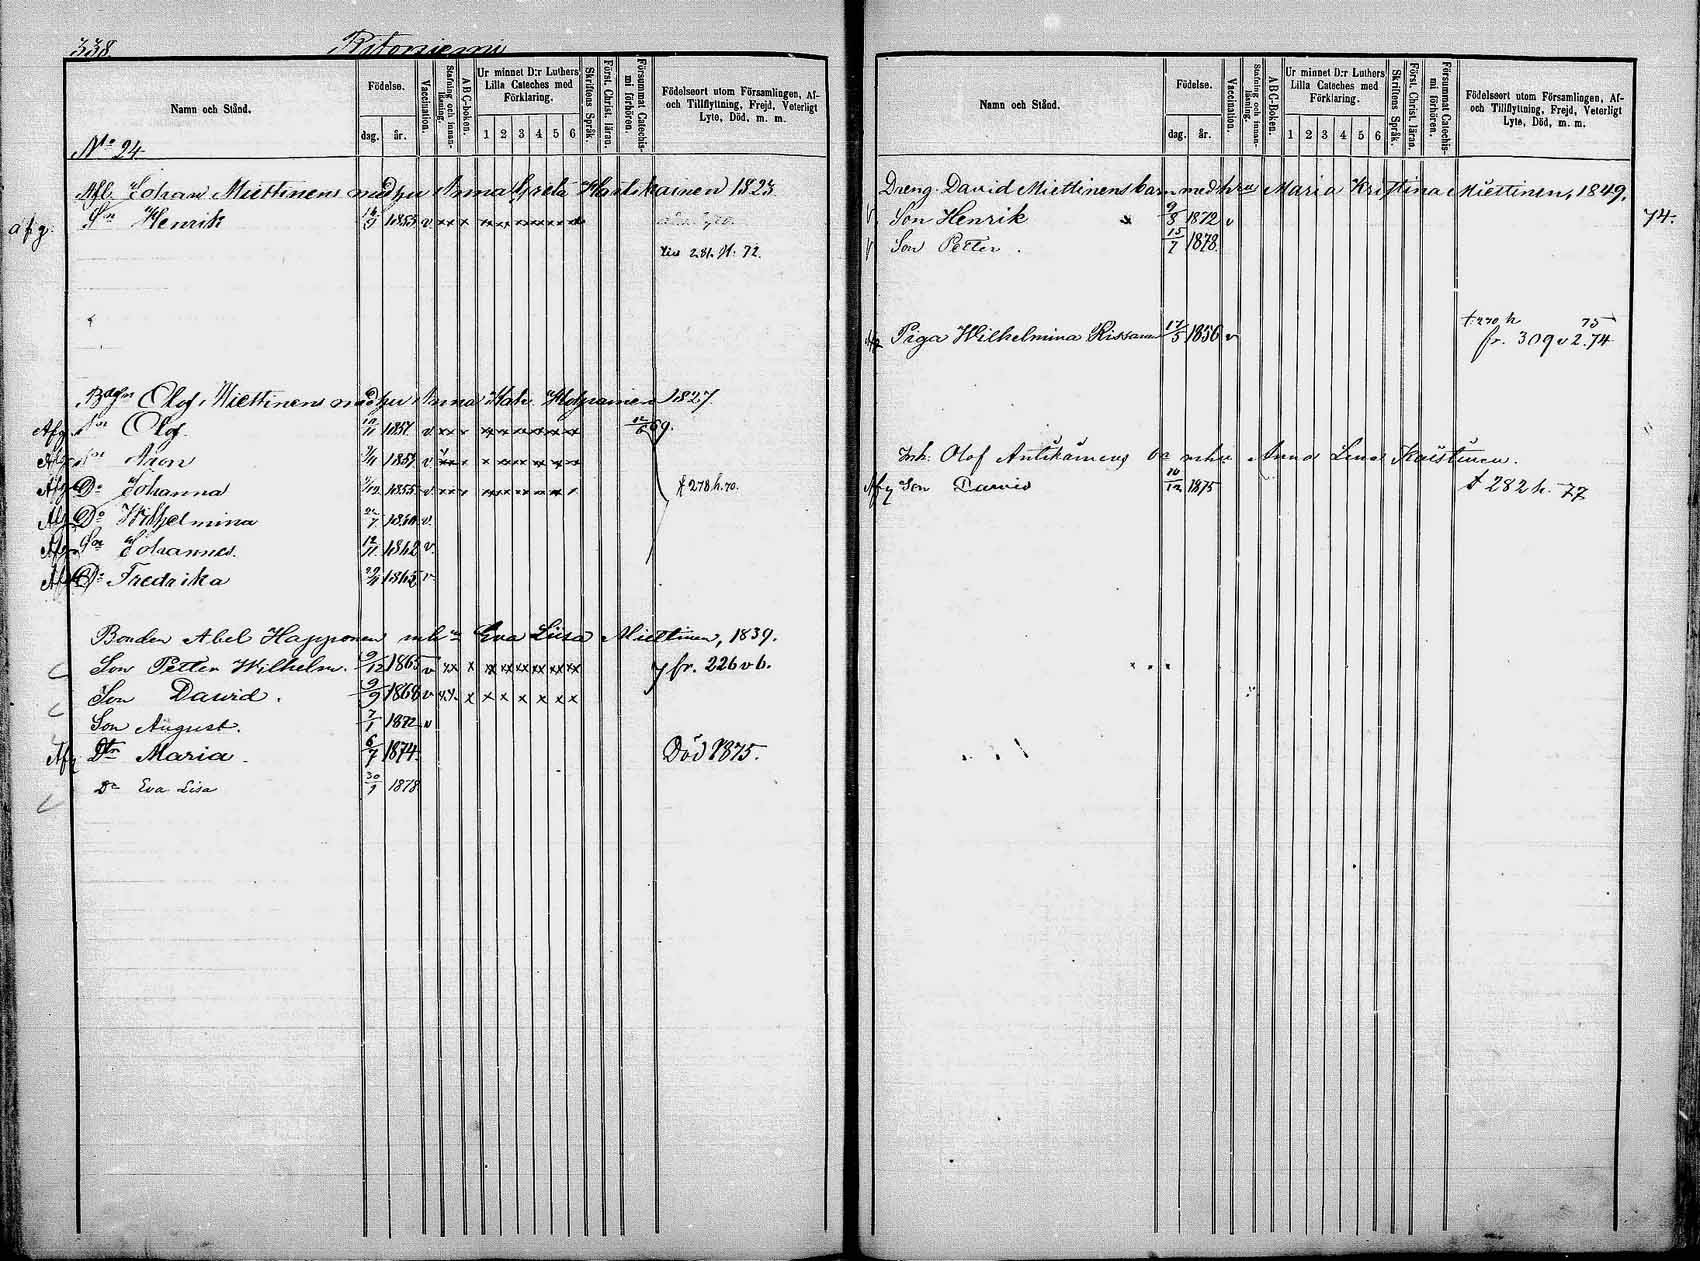 338.
Ritoniemi
Namn och Stånd.
Födelse.
dag. år.
Vaccination.
Stafning och innan-läsning.
ABC-boken.
Ur minnet D:r Luthers Lilla Cateches med Förklaring.
1 2 3 4 5 6
Skriftens Språk.
Först. Christ. läran.
Försummat Catechismi förhören.
Födelseort utom Församlingen, Af- och Tillflyttning, Frejd, Veterligt Lyte, Död, m. m.
No 24
Johan Miettinens med hu Anna Greta Hartikainen 1823
afg. Sn Henrik 1855 v
281. 72.
Olof Miettinens med hu Anna Kath. 1827
Afg Sn Olof. v. 69.
Afg Sn Aron v.
Afg Dr Johanna 1855 v. 278 h. 70.
Afg Dr Wilhelmina v.
Afg Sn Johannes. 1862 v.
Afg Dr Fredrika v
Bonden Abel Happonen mh Eva Liisa Miettinen, 1839.
Son Petter Wilhelm. 9/12 1865 v fr. 226 v 6.
Son Dawid. 9/9 1868 v
Son August. 7/1 1872 v
Af Dtr Maria. 6/7 1874. Död 1875.
Dr Eva Lisa 30/9 1878
Namn och Stånd.
Födelse.
dag. år.
Vaccination.
Stafning och innan-läsning.
ABC-boken.
Ur minnet D:r Luthers Lilla Cateches med Förklaring.
1 2 3 4 5 6
Skriftens Språk.
Först. Christ. läran.
Försummat Catechismi förhören.
Födelseort utom Församlingen, Af- och Tillflyttning, Frejd, Veterligt Lyte, Död, m. m.
Dreng David Miettinens barn med hru Maria Kristina Miettinen, 1849.
Son Henrik 9/8 1872 v 74.
Son Petter. 15/7 1878.
t. 270 h 75
Piga Wilhelmina Rissanen 17/5 1856 v fr. 309 v 2. 74
Inh. Olof mhu Anna Lena
Af Son David 10/12 1875 282 h. 77